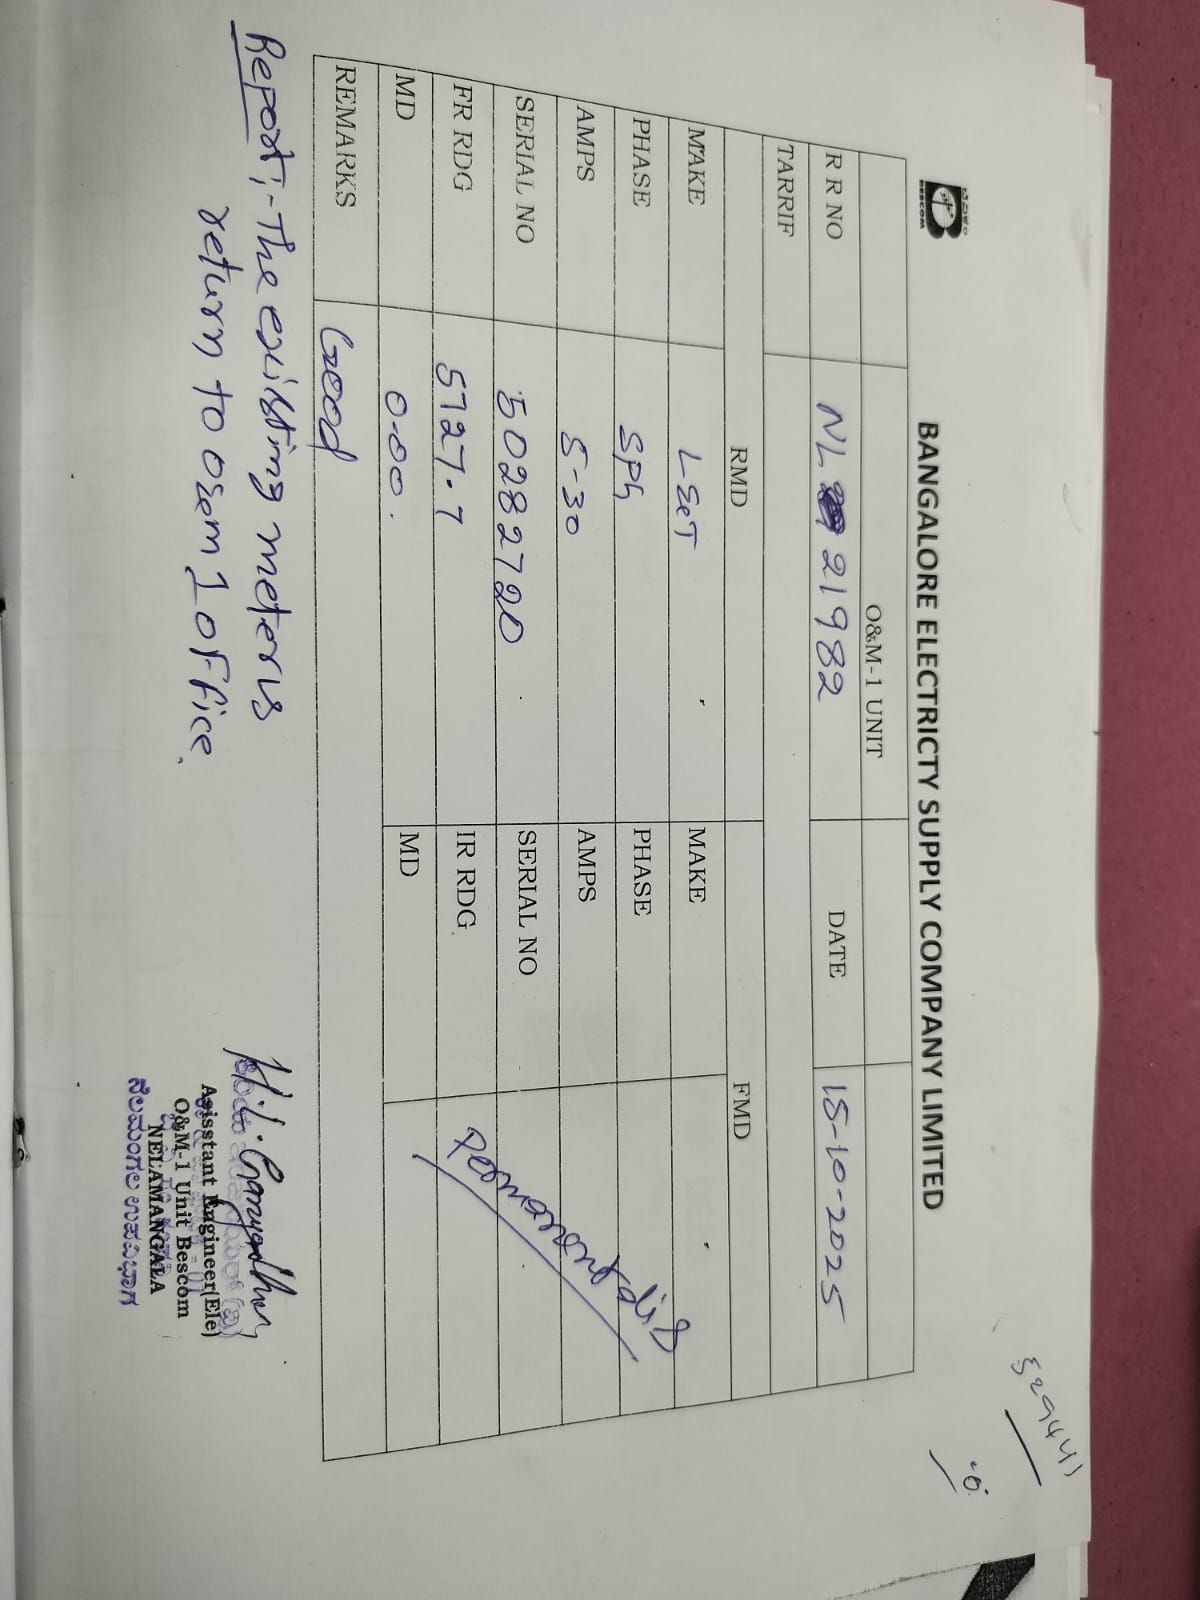 ಬೆವಿಕಂ
BESCOM
BANGALORE ELECTRICTY SUPPLY COMPANY LIMITED
O&M-1 UNIT
R R NO NL 21982 DATE 15-10-2025
TARRIF
RMD FMD
MAKE L&T MAKE
PHASE SPh PHASE
AMPS 5-30 AMPS
SERIAL NO 50282720 SERIAL NO
FR RDG 5727.7 IR RDG
MD 0.00. MD
REMARKS Good
Report:- The existing meter is
return to o&m1 office.
Asisstant Engineer(Ele)
O&M-1 Unit Bescom
NELAMANGALA
ನೆಲಮಂಗಲ ಉಪವಿಭಾಗ